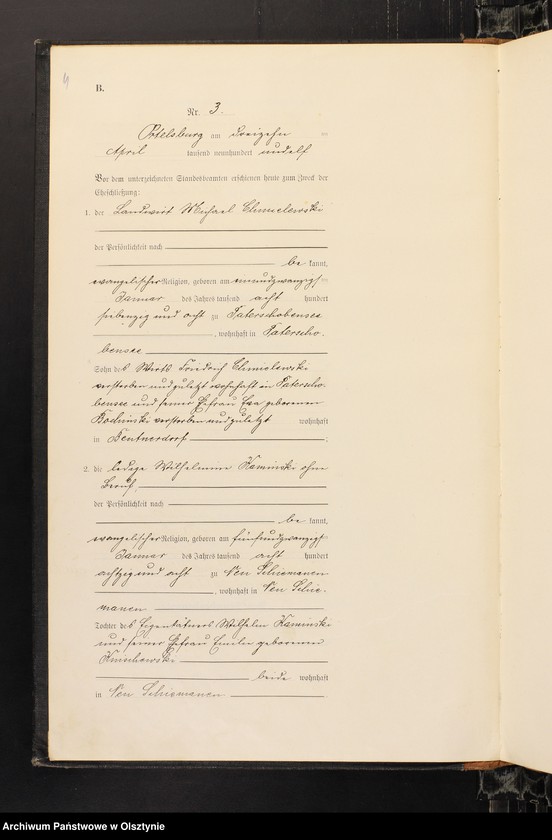 4
B.
Nr. 3.
Ortelsburg am dreizehn
April tausend neunhundert undelf
Vor dem unterzeichneten Standesbeamten erschienen heute zum Zweck der
Eheschließung:
1. der Landwirt Michael Chmielewski
der Persönlichkeit nach
be kannt,
evangelischer Religion, geboren am
Januar des Jahres tausend acht hundert
siebenzig und acht zu Paterschobensee
, wohnhaft in Paterscho-
bensee
Sohn des Wirts Friedrich Chmielewski
verstorben und zuletzt wohnhaft in Paterscho-
bensee und seiner Ehefrau Eva geborenen
verstorben und zuletzt wohnhaft
in Beutnerdorf
2. die ledige Wilhelmine Kaminski ohne
Beruf,
der Persönlichkeit nach
be kannt,
evangelischer Religion, geboren am fünfundzwanzigst
Januar des Jahres tausend acht hundert
achtzig und acht zu Neu Schiemanen
, wohnhaft in Neu Schie-
manen
Tochter des Eigentümers Wilhelm Kaminski
und seiner Ehefrau Emilie geborenen
beide wohnhaft
in Neu Schiemanen
Archiwum Państwowe w Olsztynie